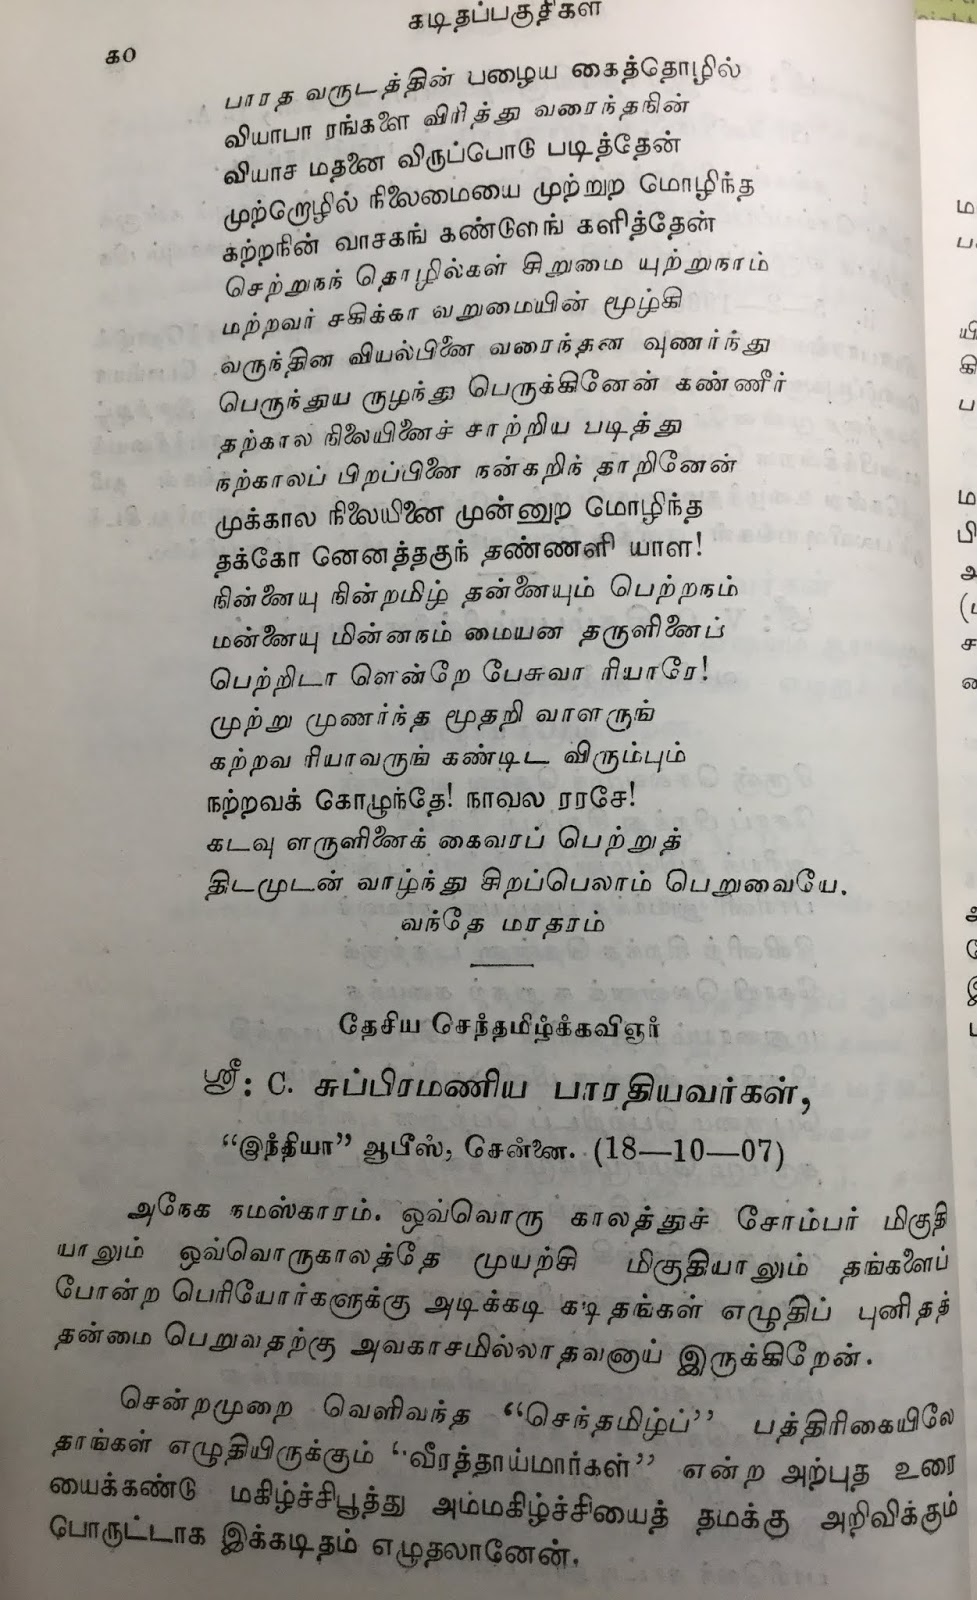 கடிதப்பகுதிகள்
௧௦
பாரத வருடத்தின் பழைய கைத்தொழில்
வியாபா ரங்களை விரித்து வரைந்தநின்
வியாச மதனை விருப்பொடு படித்தேன்
முற்றொழில் நிலைமையை முற்றுற மொழிந்த
கற்றநின் வாசகங் கண்டுளங் களித்தேன்
செற்றுநந் தொழில்கள் சிறுமை யுற்றுநாம்
மற்றவர் சகிக்கா வறுமையின் மூழ்கி
வருந்தின வியல்பினை வரைந்தன வுணர்ந்து
பெருந்துய ருழந்து பெருக்கினேன் கண்ணீர்
தற்கால நிலையினைச் சாற்றிய படித்து
நற்காலப் பிறப்பினை நன்கறிந் தாறினேன்
முக்கால நிலையினை முன்னுற மொழிந்த
தக்கோ னெனத்தகுந் தண்ணளி யாள!
நின்னையு நின்றமிழ் தன்னையும் பெற்றநம்
மன்னையு மின்னநம் மையன தருளினைப்
பெற்றிடா ளென்றே பேசுவா ரியாரே!
முற்று முணர்ந்த மூதறி வாளருங்
கற்றவ ரியாவருங் கண்டிட விரும்பும்
நற்றவக் கொழுந்தே! நாவல ரரசே!
கடவு ளருளினைக் கைவரப் பெற்றுத்
திடமுடன் வாழ்ந்து சிறப்பெலாம் பெறுவையே.
வந்தே மாதரம்
தேசிய செந்தமிழ்க்கவிஞர்
ஸ்ரீ: C. சுப்பிரமணிய பாரதியவர்கள்,
“இந்தியா” ஆபீஸ், சென்னை. (18—10—07)
அநேக நமஸ்காரம். ஒவ்வொரு காலத்துச் சோம்பர் மிகுதி
யாலும் ஒவ்வொருகாலத்தே முயற்சி மிகுதியாலும் தங்களைப்
போன்ற பெரியோர்களுக்கு அடிக்கடி கடிதங்கள் எழுதிப் புனிதத்
தன்மை பெறுவதற்கு அவகாசமில்லாதவனாய் இருக்கிறேன்.
சென்றமுறை வெளிவந்த “செந்தமிழ்ப்” பத்திரிகையிலே
தாங்கள் எழுதியிருக்கும் “வீரத்தாய்மார்கள்” என்ற அற்புத உரை
யைக்கண்டு மகிழ்ச்சிபூத்து அம்மகிழ்ச்சியைத் தமக்கு அறிவிக்கும்
பொருட்டாக இக்கடிதம் எழுதலானேன்.